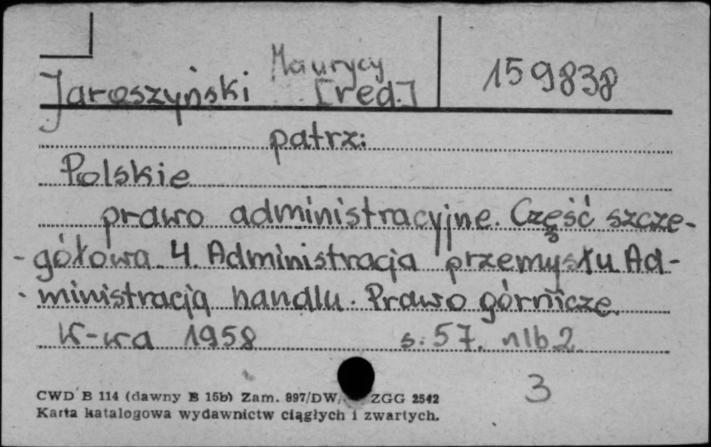 Maurycy
Jaroszyński [red.] 159838
patrz:
Polskie
prawo administracyjne. Część szcze-
- gółowa 4. Administracja przemysłu Ad-
- ministracją handlu. Prawo górnicze.
K-wa 1958 s. 57. nlb 2
3
CWD B 114 (dawny B 15b) Zam. 897/DW/ ZGG 2542
Karta katalogowa wydawnictw ciągłych i zwartych.